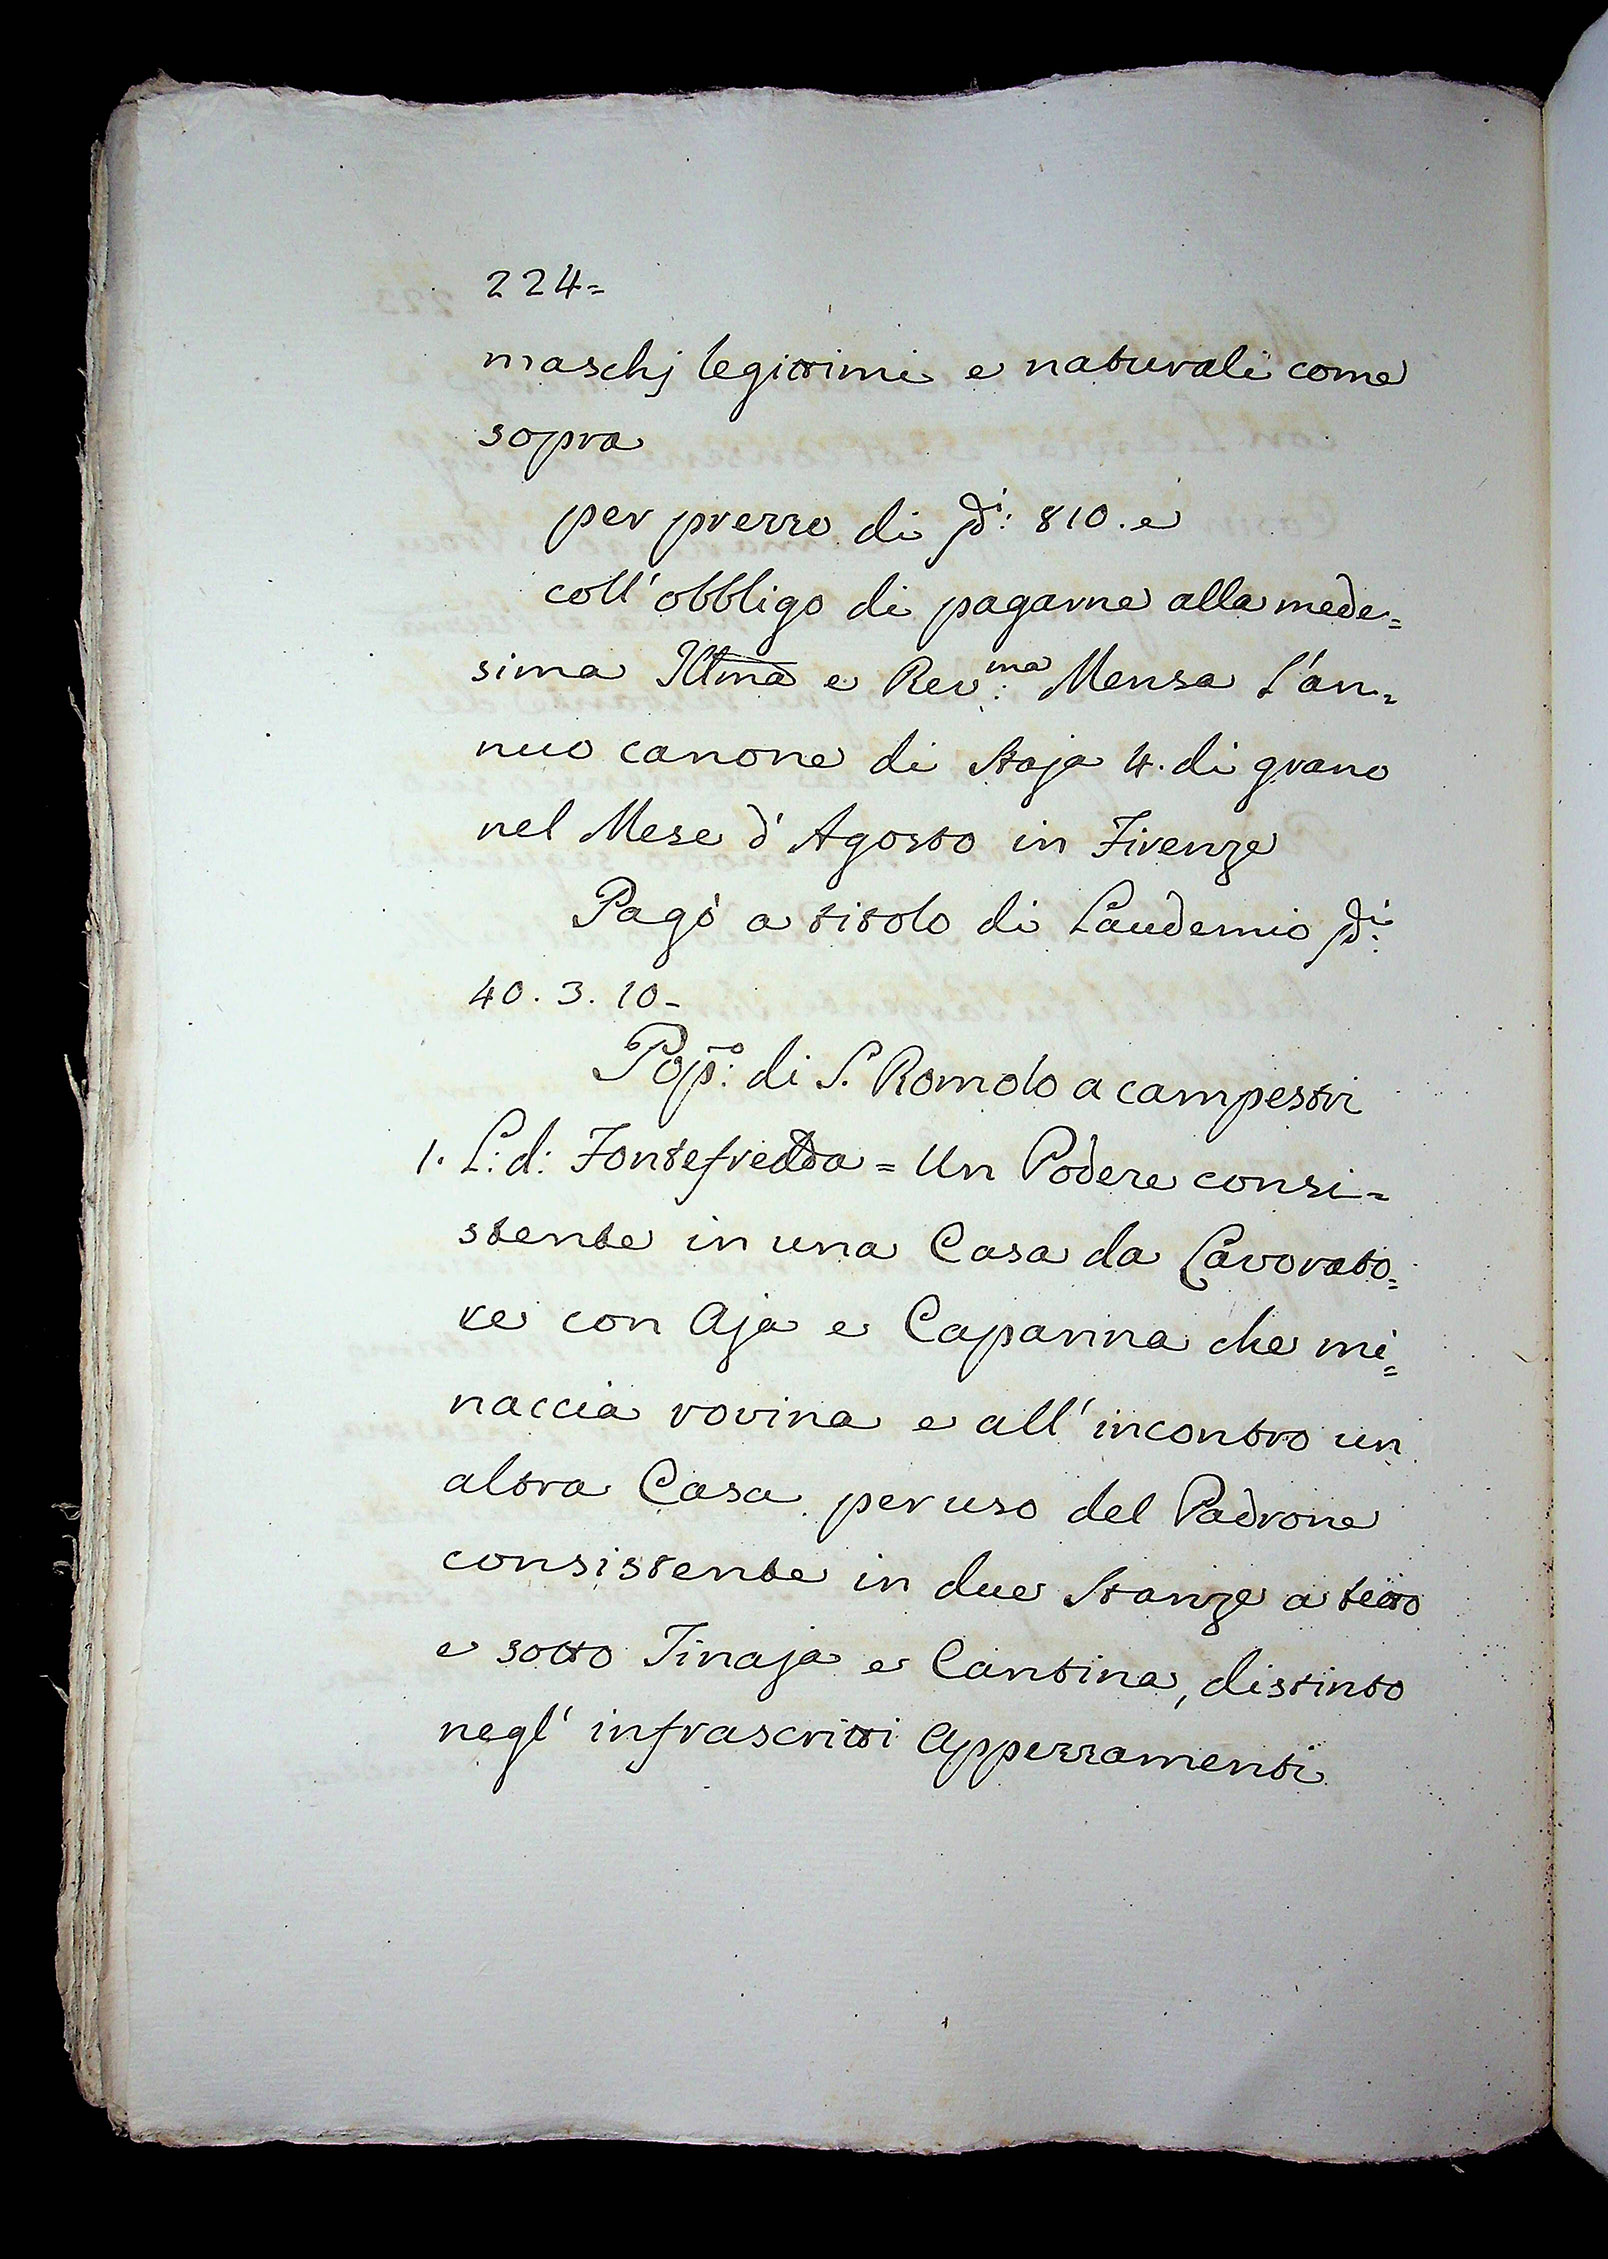 224=
maschj legittimi e naturali come
sopra
per prezzo di 810. e
coll' obbligo di pagarne alla mede=
sima Illma e Rev:ma Mensa l'an=
nuo canone di Staja 4. di grano
nel Mese d'Agosto in Firenze
Pagò a titolo di Laudemio
40. 3. 10-
Pop:o di S. Romolo a campestri
1. L: d: Fontefredda = Un Podere consi=
stente in una Casa da Lavorato=
re con Aja e Capanna che mi=
naccia rovina e all' incontro un
altra Casa per uso del Padrone
consistente in due Stanze a tetto
e sotto Tinaja e Cantina, distinto
negl' infrascritti Appezzamenti